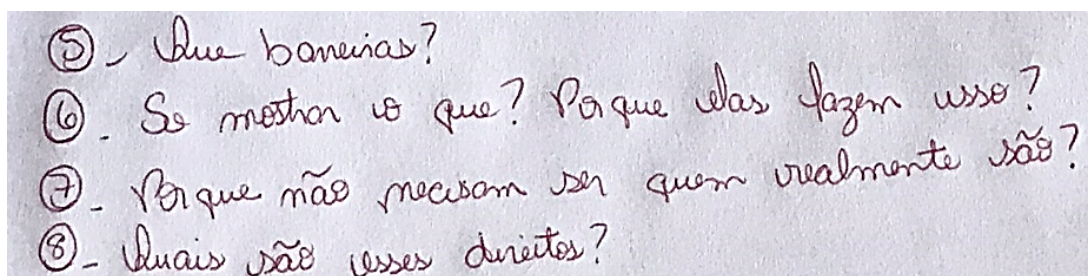 5 - Que barreiras?
6 - Se mostrar o que? Porque elas fazem isso?
7 - Porque não precisam ser quem realmente são?
8 - Quais são esses direitos?